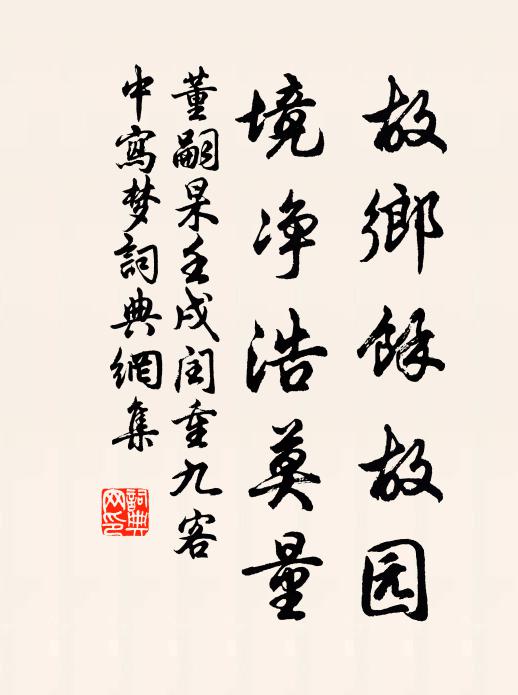 故鄉餘故园
境净浩莫量
董嗣杲壬戌闰重九客
中寫梦詞典網集
詞典网印